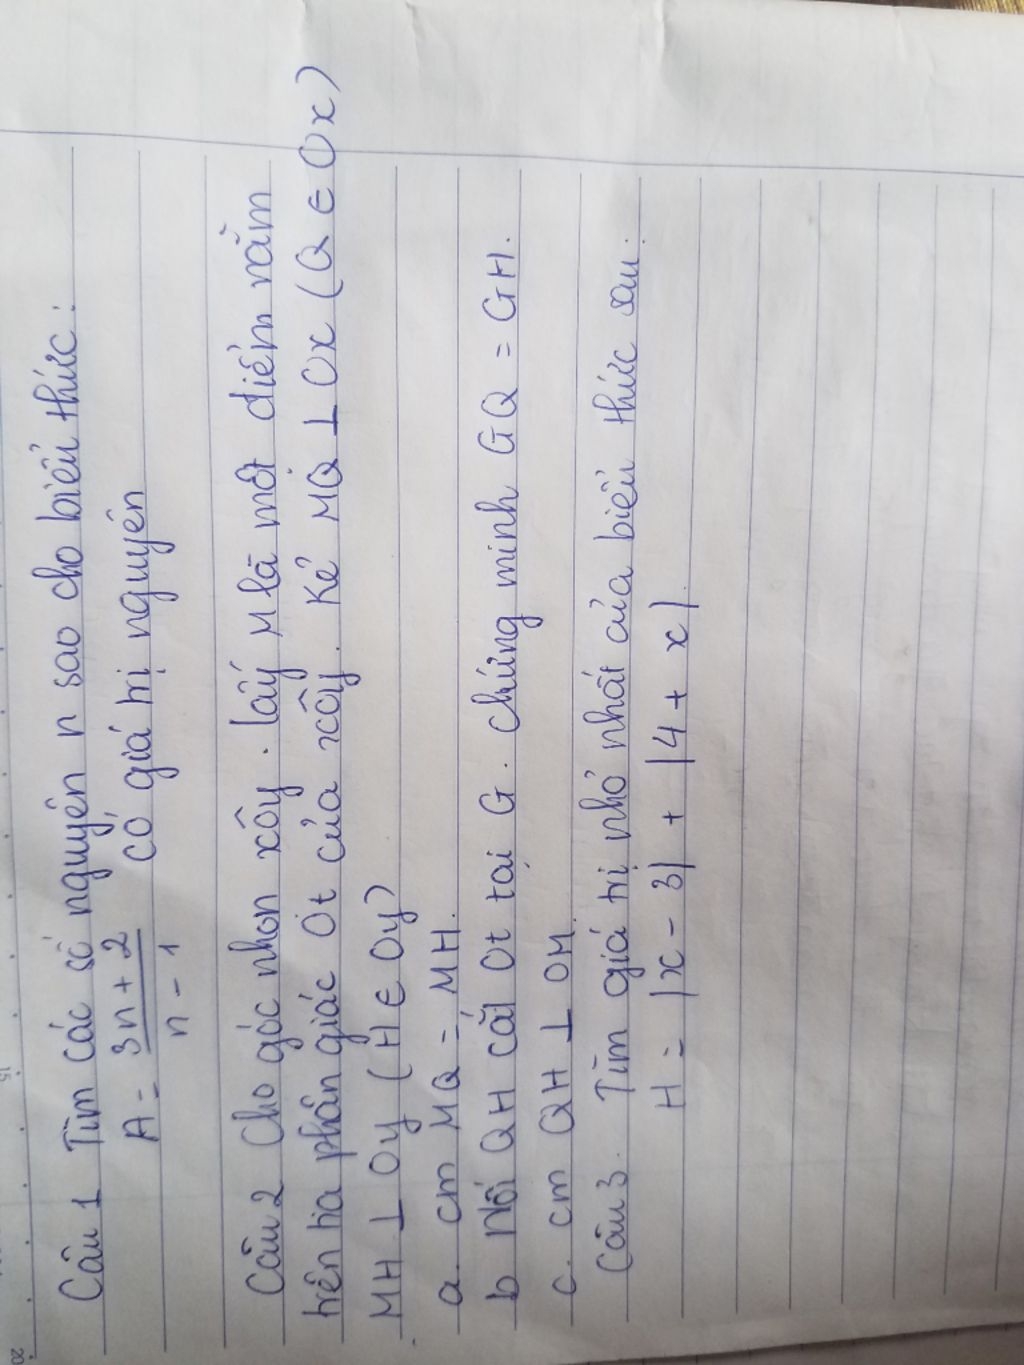 Câu 1 Tìm các số nguyên n sao cho biểu thức:
A = 3n + 2 / n - 1 có giá trị nguyên
Câu 2 Cho góc nhọn xôy. lấy M là một điểm nằm
trên tia phân giác Ot của xôy. Kẻ MQ ⊥ Ox (Q ∈ Ox)
MH ⊥ Oy (H ∈ Oy)
a. cm MQ = MH.
b Nối QH cắt Ot tại G. chứng minh GQ = GH.
c. cm QH ⊥ OM.
Câu 3. Tìm giá trị nhỏ nhất của biểu thức sau:
H = |x - 3| + |4 + x|.